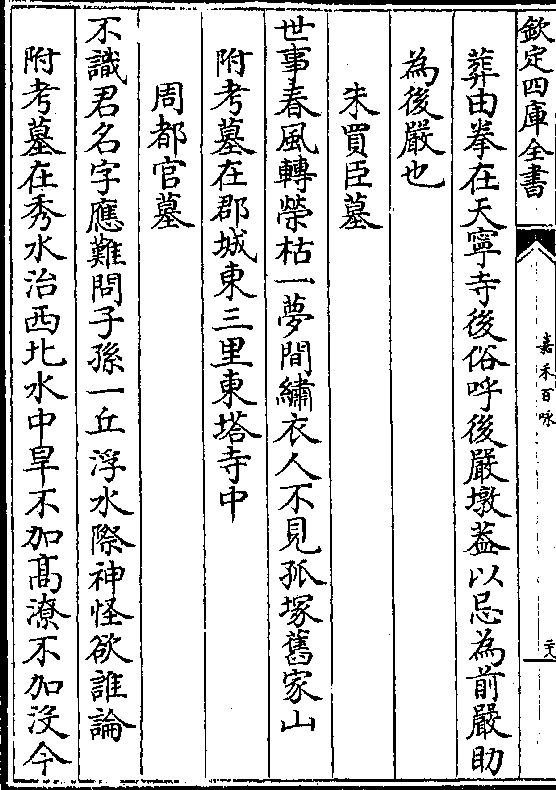 欽定四庫全書
嘉禾百咏
二八
葬由拳在天寧寺後俗呼後嚴墩葢以忌為前嚴助
為後嚴也
朱買臣墓
世事春風轉榮枯一夢間繡衣人不見孤塚舊家山
附考墓在郡城東三里東塔寺中
周都官墓
不識君名字應難問子孫一丘浮水際神怪欲誰論
附考墓在秀水治西北水中旱不加髙潦不加沒今